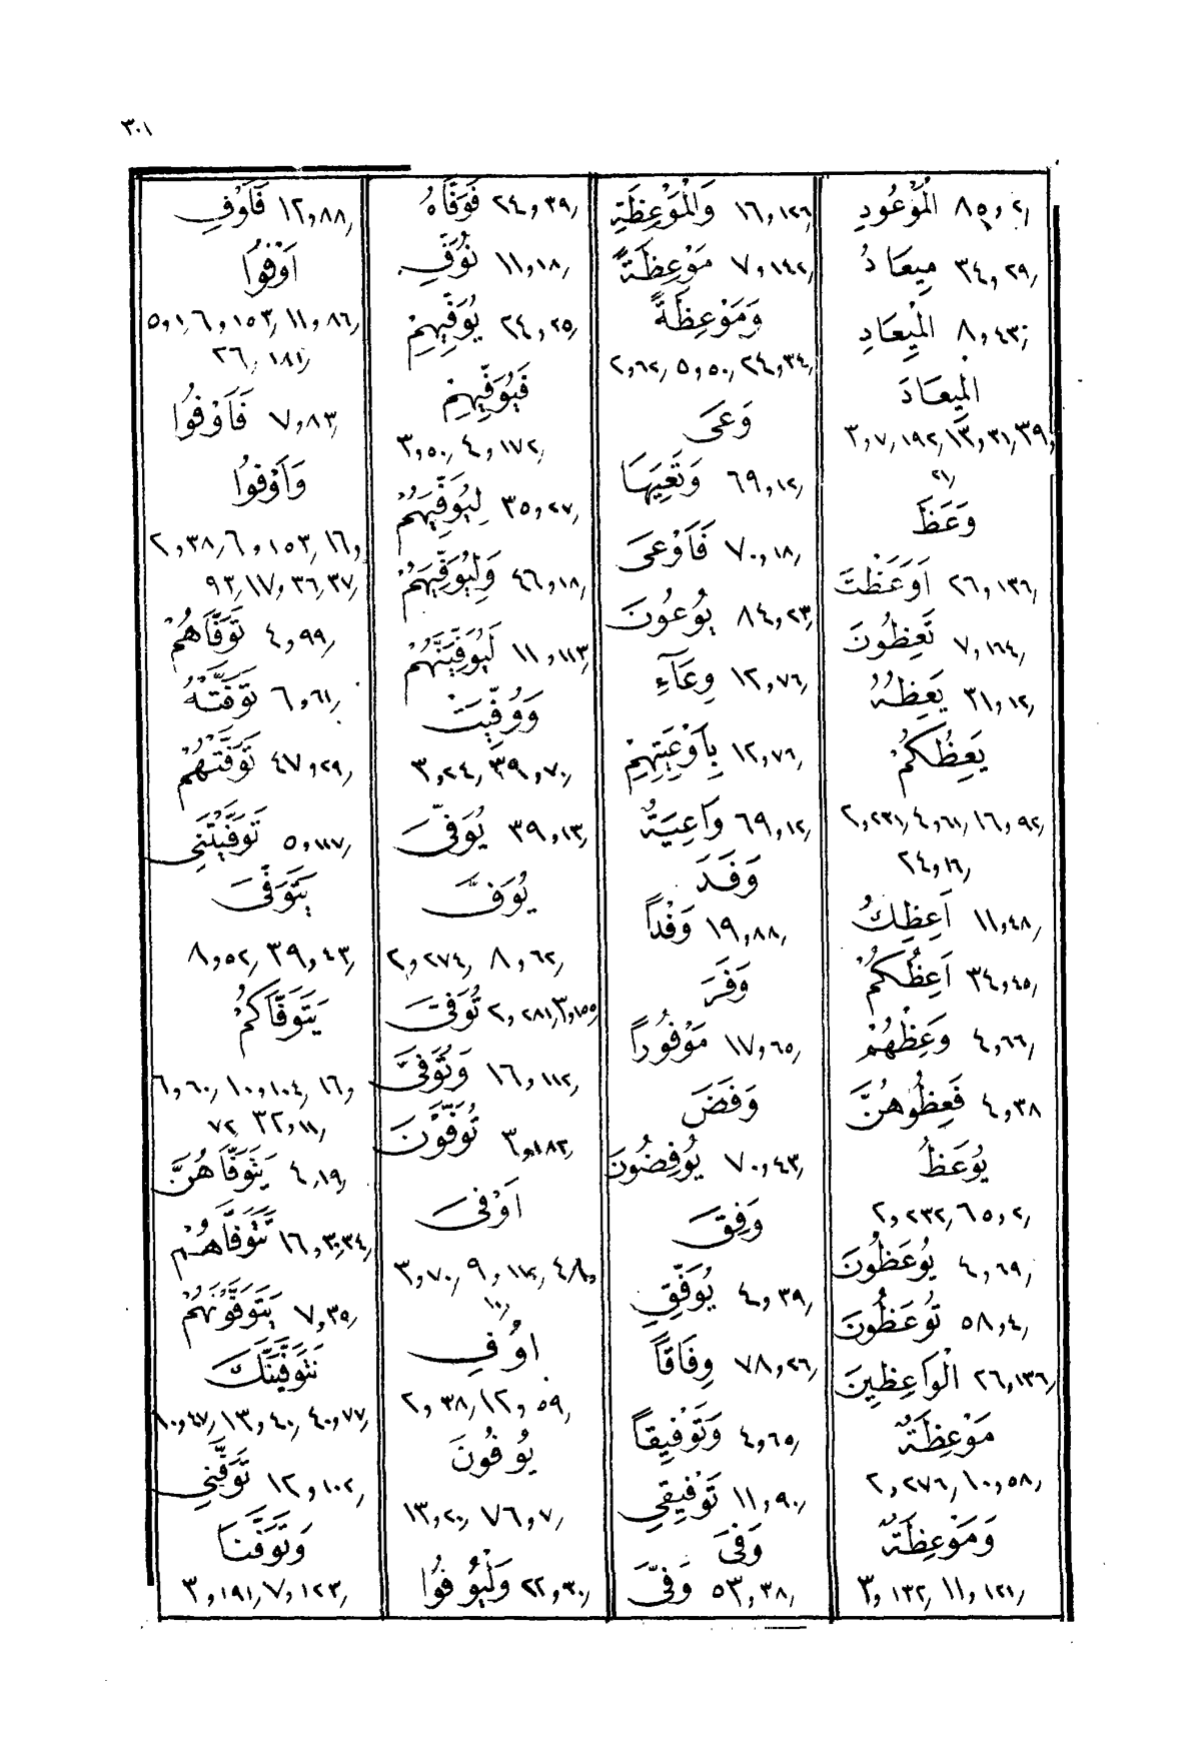 ٣٠١
الْمَوْعُودِ ٨٥,٢
مِيعَادُ ٣٤,٢٩
الْمِيعَادِ ٨,٤٣
الْمِيعَادَ
٣,٧,١٩٢,١٣,٣١,٣٩
٢١
وَعَظَ
اَوَعَظْتَ ٢٦,١٣٦
تَعِظُونَ ٧,١٦٤
يَعِظُهُ ٣١,١٢
يَعِظُكُمْ
٢,٢٣١,٤,٦١,١٦,٩٢
٢٤,١٦
اَعِظُكَ ١١,٤٨
اَعِظُكُمْ ٣٤,٤٥
وَعِظْهُمْ ٤,٦٦
فَعِظُوهُنَّ ٤,٣٨
يُوعَظُ
٢,٢٣٢,٦٥,٢
يُوعَظُونَ ٤,٦٩
تُوعَظُونَ ٥٨,٤
الْوَاعِظِينَ ٢٦,١٣٦
مَوْعِظَةٌ
٢,٢٧٦,١٠,٥٨
وَمَوْعِظَةٌ
٣,١٣٢,١١,١٢١
وَالْمَوْعِظَةِ ١٦,١٢٦
مَوْعِظَةً ٧,١٤٢
وَمَوْعِظَةً
٢,٦٢,٥,٥٠,٢٤,٣٤
وَعَى
وَتَعِيَهَا ٦٩,١٢
فَاَوْعَى ٧٠,١٨
يُوعُونَ ٨٤,٢٣
وِعَآءِ ١٢,٧٦
بِاَوْعِيَتِهِمْ ١٢,٧٦
وَاعِيَةٌ ٦٩,١٢
وَفَدَ
وَفْداً ١٩,٨٨
وَفَرَ
مَوْفُوراً ١٧,٦٥
وَفَضَ
يُوفِضُونَ ٧٠,٤٣
وَفِقَ
يُوَفِّقِ ٤,٣٩
وِفَاقاً ٧٨,٢٦
وَتَوْفِيقاً ٤,٦٥
تَوْفِيقِي ١١,٩٠
وَفَى
وَفّىَ ٥٣,٣٨
فَوَفَّاهُ ٢٤,٣٩
نُوَفِّ ١١,١٨
يُوَفِّيهِمْ ٢٤,٢٥
فَيُوَفِّيهِمْ
٣,٥٠,٤,١٧٢
لِيُوَفِّيَهُمْ ٣٥,٢٧
وَلِيُوَفِّيَهُمْ ٤٦,١٨
لَيُوَفِّيَنَّهُمْ ١١,١١٣
وَوُفِّيَتْ
٣,٢٤,٣٩,٧٠
يُوَفَّى ٣٩,١٣
يُوَفَّ
٢,٢٧٤,٨,٦٢
تُوَفَّى ٢,٢٨١,٣,١٥٥
وَتُوَفَّى ١٦,١١٢
تُوَفَّوْنَ ٣,١٨٢
اَوْفَى
٣,٧٠,٩,١١٢,٤٨
١٠
اُوفِ
٢,٣٨,١٢,٥٩
يُوفُونَ
١٣,٢٠,٧٦,٧
وَلْيُوفُوا ٢٢,٣٠
فَاَوْفِ ١٢,٨٨
اَوْفُوا
٥,١,٦,١٥٣,١١,٨٦
٢٦,١٨١
فَاَوْفُوا ٧,٨٣
وَاَوْفُوا
٢,٣٨,٦,١٥٣,١٦
٩٣,١٧,٣٦,٣٧
تَوَفَّاهُمْ ٤,٩٩
تَوَفَّتْهُ ٦,٦١
تَوَفَّتْهُمْ ٤٧,٢٩
تَوَفَّيْتَنِي ٥,١١٧
يَتَوَفَّى
٨,٥٢,٣٩,٤٣
يَتَوَفَّاكُمْ
٦,٦٠,١٠,١٠٤,١٦
٧٢,٣٢,١١
يَتَوَفَّاهُنَّ ٤,١٩
تَتَوَفَّاهُمْ ١٦,٣٠,٣٤
يَتَوَفَّوْنَهُمْ ٧,٣٥
نَتَوَفَّيَنَّكَ
١٠,٤٧,١٣,٤٠,٤٠,٧٧
تَوَفَّنِي ١٢,١٠٢
وَتَوَفَّنَا
٣,١٩١,٧,١٢٣